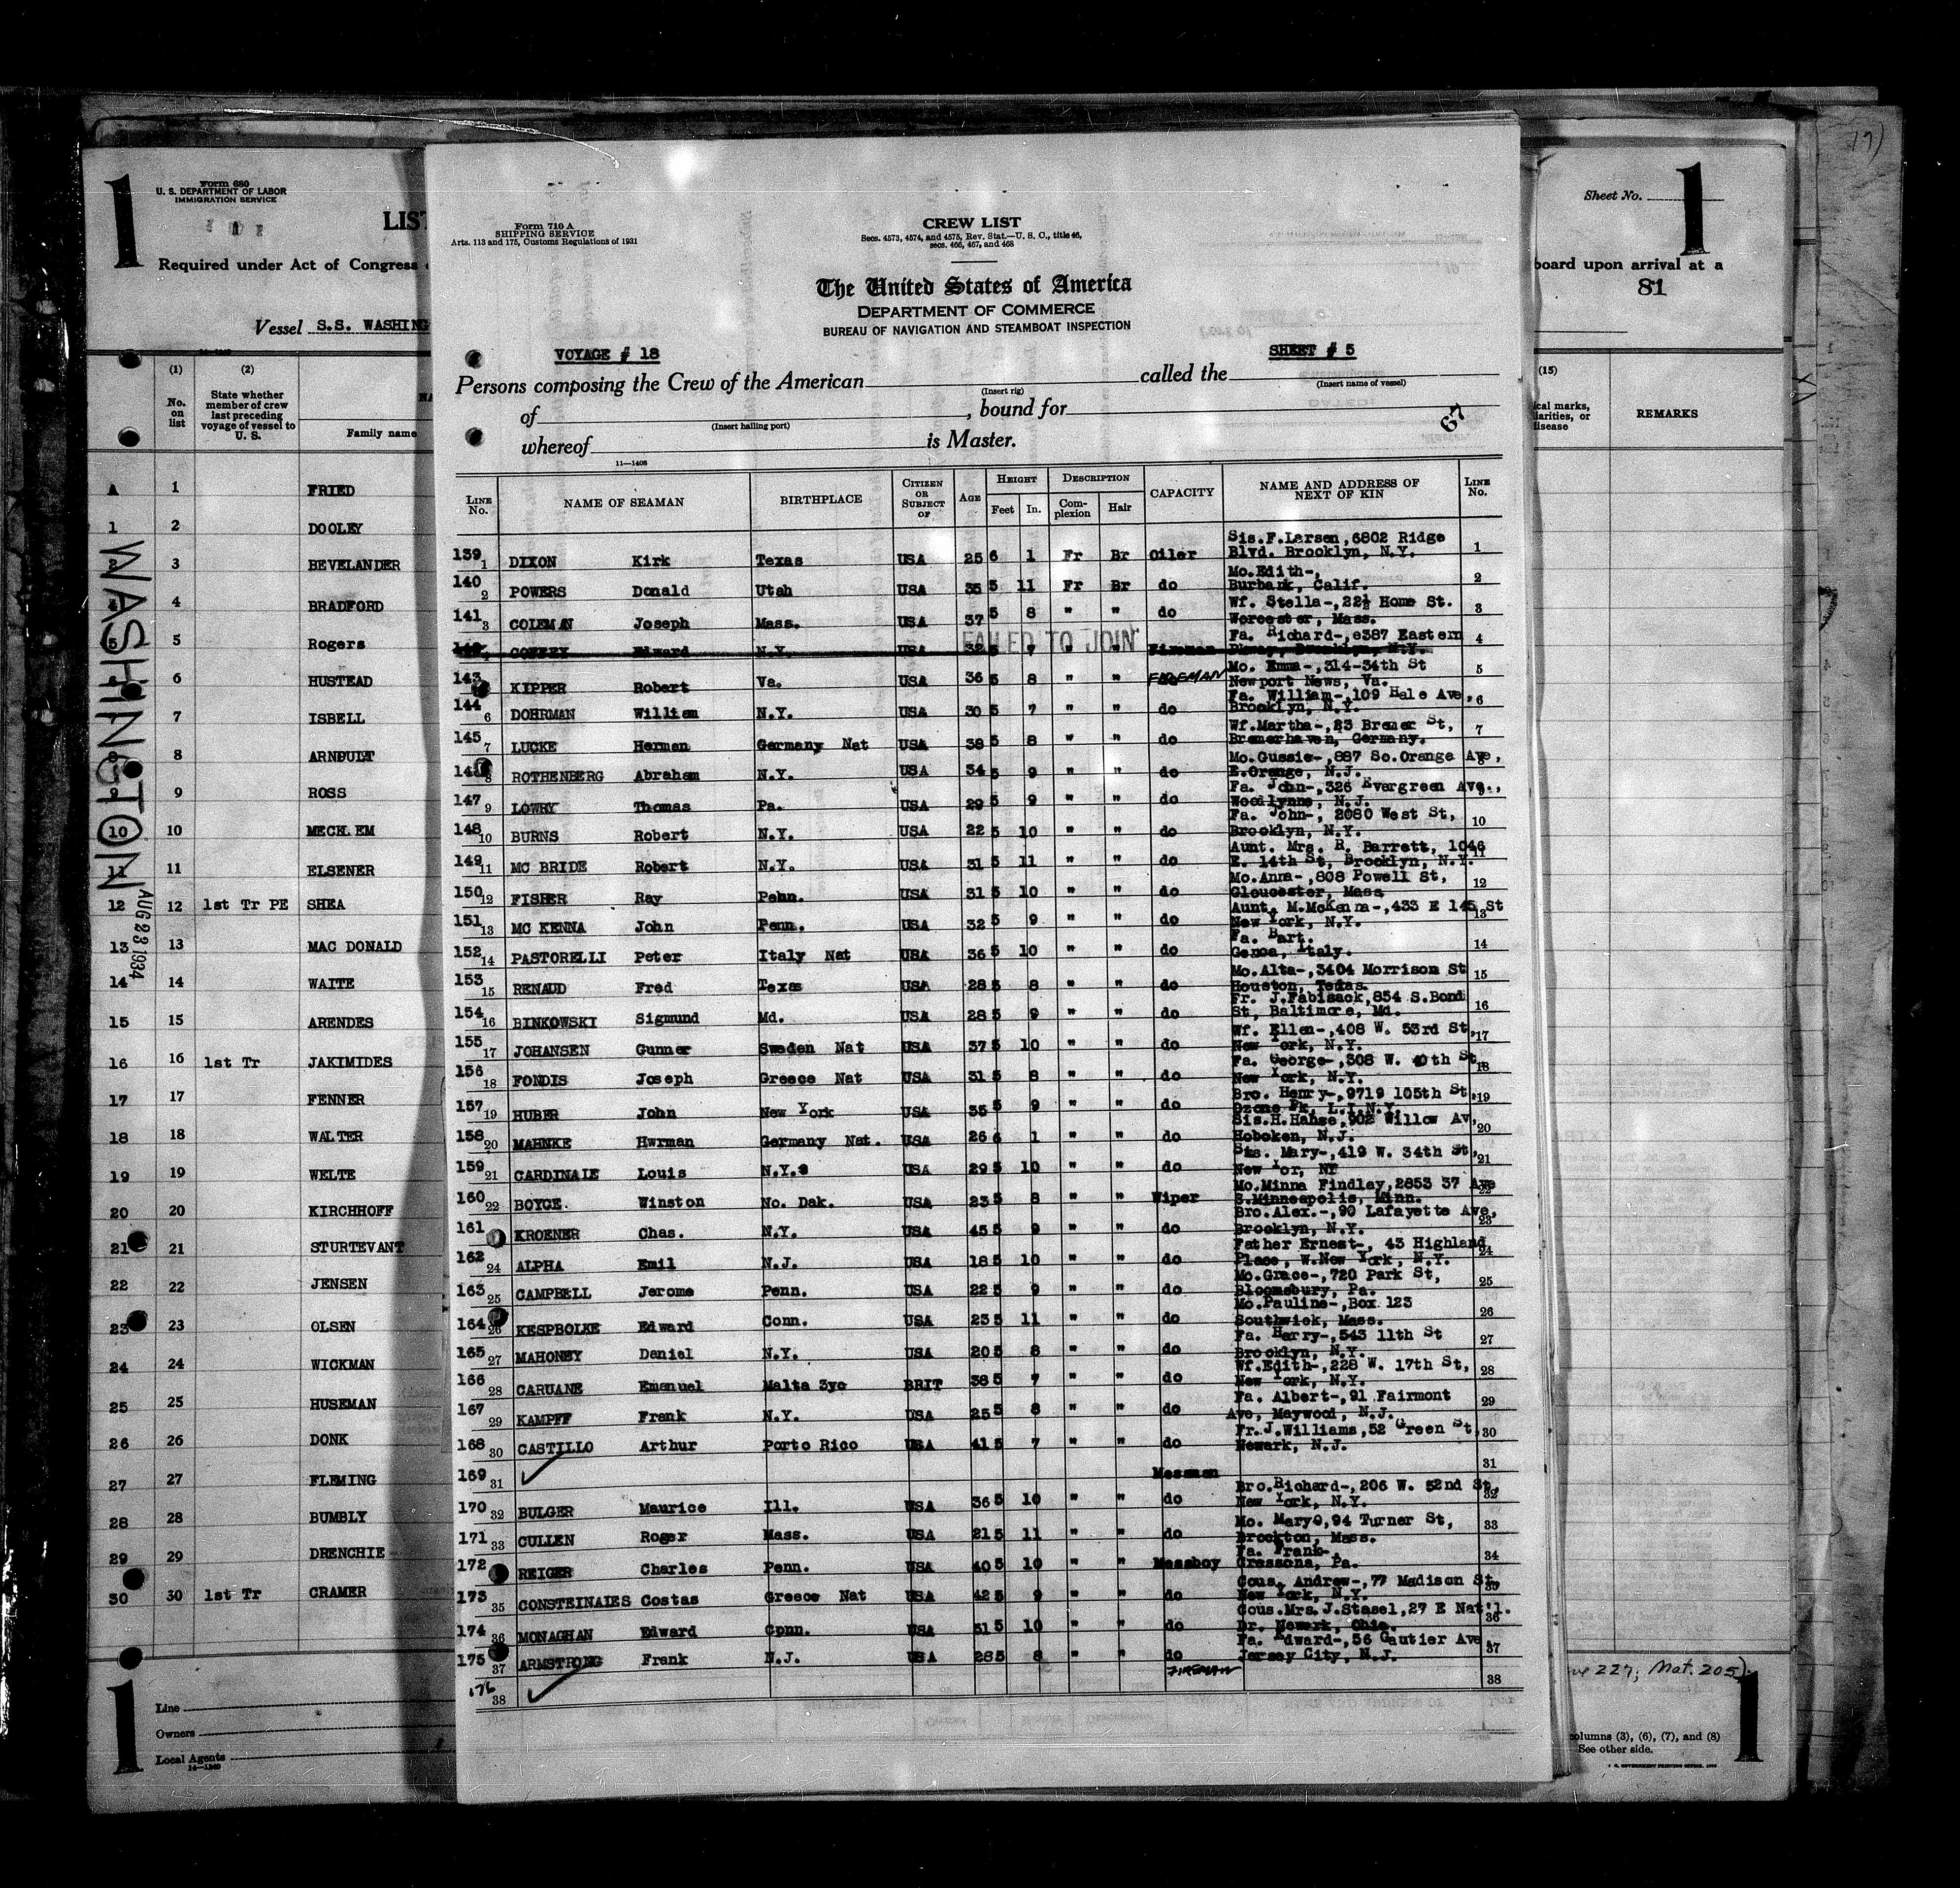 1
Form 680
U. S. DEPARTMENT OF LABOR
IMMIGRATION SERVICE
LIST
Required under Act of Congress
Vessel S.S. WASHING
(1) (2)
No. on list
State whether member of crew last preceding voyage of vessel to U. S.
NA
Family name
1 FRIED
1 2 DOOLEY
3 BEVELANDER
4 BRADFORD
5 5 Rogers
6 HUSTEAD
7 ISBELL
8 ARNOULT
9 9 ROSS
10 10 MECKLEM
11 11 ELSENER
12 12 1st Tr PE SHEA
13 13 MAC DONALD
14 14 WAITE
15 15 ARENDES
16 16 1st Tr JAKIMIDES
17 17 FENNER
18 18 WALTER
19 19 WELTE
20 20 KIRCHHOFF
21 21 STURTEVANT
22 22 JENSEN
23 23 OLSEN
24 24 WICKMAN
25 25 HUSEMAN
26 26 DONK
27 27 FLEMING
28 28 BUMBLY
29 29 DRENCHIE
30 30 1st Tr CRAMER
WASHINGTON
AUG 23 1934
Line
Owners
Local Agents
14—1240
1
Form 710 A
SHIPPING SERVICE
Arts. 113 and 175, Customs Regulations of 1931
CREW LIST
Secs. 4573, 4574, and 4575, Rev. Stat.—U. S. C., title 46,
secs. 466, 467, and 468
The United States of America
DEPARTMENT OF COMMERCE
BUREAU OF NAVIGATION AND STEAMBOAT INSPECTION
VOYAGE # 18 SHEET # 5
Persons composing the Crew of the American called the
(Insert rig) (Insert name of vessel)
of , bound for
(Insert hailing port)
67
whereof is Master.
11—1408
LINE No. NAME OF SEAMAN BIRTHPLACE CITIZEN OR SUBJECT OF AGE HEIGHT Feet In. DESCRIPTION Complexion Hair CAPACITY NAME AND ADDRESS OF NEXT OF KIN LINE No.
139 1 DIXON Kirk Texas USA 25 6 1 Fr Br Oiler Sis.F.Larsen,6802 Ridge Blvd. Brooklyn, N.Y. 1
140 2 POWERS Donald Utah USA 35 5 11 Fr Br do Mo.Edith-, Burbank, Calif. 2
141 3 COLEMAN Joseph Mass. USA 37 5 8 " " do Wf. Stella-,22½ Home St. Worcester, Mass. 3
FAILED TO JOIN
142 4 COFFEY Edward N.Y. USA 32 5 7 " " Fireman Fa. Richard-,e387 Eastern Pkway, Brooklyn, N.Y. 4
143 KIPPER Robert Va. USA 36 5 8 " " FIREMAN Mo. Emma-,314-34th St Newport News, Va. 5
144 6 DOHRMAN William N.Y. USA 30 5 7 " " do Fa. William-,109 Hale Ave, Brooklyn, N.Y. 6
145 7 LUCKE Herman Germany Nat USA 38 5 8 " " do Wf.Martha-,23 Bremer St, Bremerhaven, Germany. 7
146 8 ROTHENBERG Abraham N.Y. USA 34 5 9 " " do Mo.Gussie-,887 So.Orange Ave, E.Orange, N.J. 8
147 9 LOWRY Thomas Pa. USA 29 5 9 " " do Fa. John-,326 Evergreen Ave., Woodlynne, N.J. 9
148 10 BURNS Robert N.Y. USA 22 5 10 " " do Fa. John-, 2080 West St, Brooklyn, N.Y. 10
149 11 MC BRIDE Robert N.Y. USA 31 5 11 " " do Aunt. Mrs. R. Barrett, 1046 E. 14th St, Brooklyn, N.Y. 11
150 12 FISHER Ray Pehn. USA 31 5 10 " " do Mo.Anna-,808 Powell St, Gloucester, Mass 12
151 13 MC KENNA John Penn. USA 32 5 9 " " do Aunt. M.McKenna-,433 E 145 St New York, N.Y. 13
152 14 PASTORELLI Peter Italy Nat USA 36 5 10 " " do Fa. Bart. Genoa, Italy. 14
153 15 RENAUD Fred Texas USA 28 5 8 " " do Mo.Alta-,3404 Morrison St Houston, Texas. 15
154 16 BINKOWSKI Sigmund Md. USA 28 5 9 " " do Fr. J.Fabisack,854 S.Bond St, Baltimore, Md. 16
155 17 JOHANSEN Gunner Sweden Nat USA 37 5 10 " " do Wf. Ellen-,408 W. 53rd St, New York, N.Y. 17
156 18 FONDIS Joseph Greece Nat USA 31 5 8 " " do Fa. George-,308 W. 40th St New York, N.Y. 18
157 19 HUBER John New York USA 35 5 9 " " do Bro. Henry-,9719 105th St, Ozone Pk, L.I.N.Y. 19
158 20 MAHNKE Hwrman Germany Nat. USA 26 6 1 " " do Sis.H.Hahse,902 Willow Av, Hoboken, N.J. 20
159 21 CARDINALE Louis N.Y. USA 29 5 10 " " do Sis. Mary-,419 W. 34th St, New Yor, NY 21
160 22 BOYCE. Winston No. Dak. USA 23 5 8 " " Wiper Mo.Minna Findley,2853 37 Ave S.Minneapolis, Minn. 22
161 KROENER Chas. N.Y. USA 45 5 9 " " do Bro.Alex.-,90 Lafayette Ave, Brooklyn, N.Y. 23
162 24 ALPHA Emil N.J. USA 18 5 10 " " do Father Ernest-, 43 Highland Place, W.New York, N.Y. 24
163 25 CAMPBELL Jerome Penn. USA 22 5 9 " " do Mo.Grace-,720 Park St, Bloomsbury, Pa. 25
164 26 KESPBOLKE Edward Conn. USA 23 5 11 " " do Mo.Pauline-,Box 123 Southwick, Mass. 26
165 27 MAHONEY Daniel N.Y. USA 20 5 8 " " do Fa. Harry-,543 11th St Brooklyn, N.Y. 27
166 28 CARUANE Emanuel Malta 3yc BRIT 38 5 7 " " do Wf.Edith-,228 W. 17th St, New York, N.Y. 28
167 29 KAMPFF Frank N.Y. USA 25 5 8 " " do Fa. Albert-,91 Fairmont Ave, Maywood, N.J. 29
168 30 CASTILLO Arthur Porto Rico USA 41 5 7 " " do Fr.J.Williams,52 Green St, Newark, N.J. 30
169 31 Messman 31
170 32 BULGER Maurice Ill. USA 36 5 10 " " do Bro.Richard-,206 W. 52nd St, New York, N.Y. 32
171 33 CULLEN Roger Mass. USA 21 5 11 " " do Mo. Mary,94 Turner St, Brockton, Mass. 33
172 REIGER Charles Penn. USA 40 5 10 " " Messboy Fa. Frank-, Cressona, Pa. 34
173 35 CONSTEINAIES Costas Greece Nat USA 42 5 9 " " do Cous. Andrew-,77 Madison St, New York, N.Y. 35
174 36 MONAGHAN Edward Cpnn. USA 31 5 10 " " do Cous.Mrs.J.Stasel,27 E Nat'l. Dr. Newark, Ohio. 36
175 37 ARMSTRONG Frank N.J. USA 28 5 8 " " do Fa. Edward-,56 Gautier Ave, Jersey City, N.J. 37
176 38 FIREMAN 38
Sheet No.
1
board upon arrival at a
81
(15)
ical marks, liarities, or disease
REMARKS
227; Nat. 205)
columns (3), (6), (7), and (8)
See other side.
1